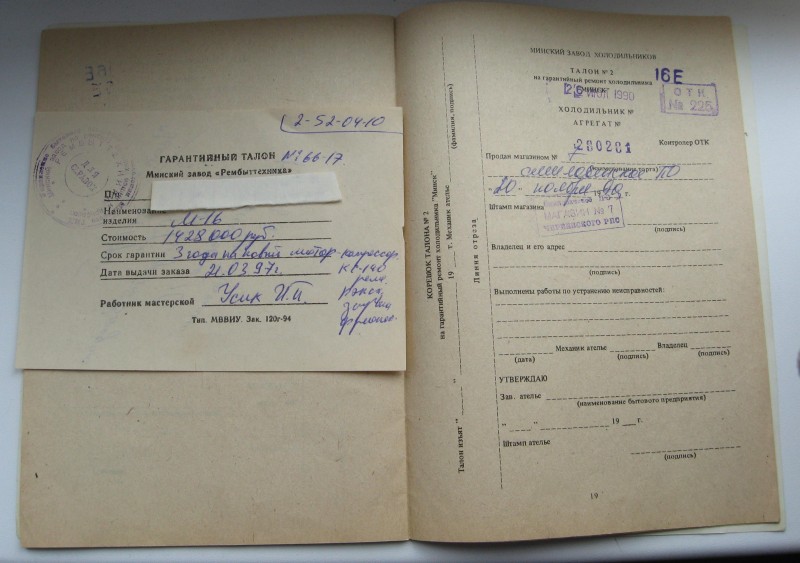 2-52-04-10
ГАРАНТИЙНЫЙ ТАЛОН №166-17
Минский завод «Рембыттехника»
Наименование
изделия М-16
Стоимость 1428000 руб.
Срок гарантии 3 года на новый мотор-компрессор
Дата выдачи заказа 21.03.97г.
КС-140
реле
Работник мастерской Усик И.И
Тип. МВВИУ. Зак. 120г-94
КОРЕШОК ТАЛОНА № 2
на гарантийный ремонт холодильника "Минск"
Талон изъят " " 19 г. Механик ателье
(фамилия, подпись)
Линия отреза
МИНСКИЙ ЗАВОД ХОЛОДИЛЬНИКОВ
ТАЛОН № 2
на гарантийный ремонт холодильника
"МИНСК"
16Е
1990
ОТК
№ 225
ХОЛОДИЛЬНИК №
АГРЕГАТ №
280281
Контролер ОТК
Продан магазином № 7
(наименование торга)
"20" ноября 1990
Штамп магазина
МАГАЗИН № 7
Владелец и его адрес
(подпись)
Выполнены работы по устранению неисправностей:
Механик ателье Владелец
(дата) (подпись) (подпись)
УТВЕРЖДАЮ
Зав. ателье
(наименование бытового предприятия)
" " 19 г.
Штамп ателье
(подпись)
19